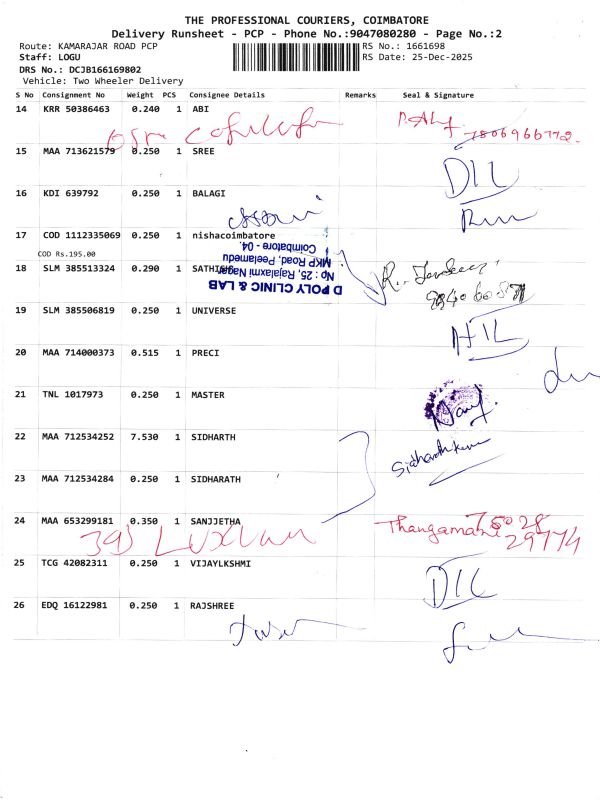 THE PROFESSIONAL COURIERS, COIMBATORE
Delivery Runsheet - PCP - Phone No.:9047080280 - Page No.:2
Route: KAMARAJAR ROAD PCP
RS No.: 1661698
Staff: LOGU
RS Date: 25-Dec-2025
DRS No.: DCJB166169802
Vehicle: Two Wheeler Delivery
S No Consignment No Weight PCS Consignee Details Remarks Seal & Signature
14 KRR 50386463 0.240 1 ABI
7806966772
15 MAA 713621579 0.250 1 SREE
16 KDI 639792 0.250 1 BALAGI
17 COD 1112335069 0.250 1 nishacoimbatore
COD Rs.195.00
18 SLM 385513324 0.290 1
D POLY CLINIC & LAB
No : 25, Rajalaxmi Nagar
MKP Road, Peelamedu
Coimbatore - 04.
19 SLM 385506819 0.250 1 UNIVERSE
20 MAA 714000373 0.515 1 PRECI
21 TNL 1017973 0.250 1 MASTER
22 MAA 712534252 7.530 1 SIDHARTH
23 MAA 712534284 0.250 1 SIDHARATH
24 MAA 653299181 0.350 1 SANJJETHA
Thangamani 75028
29774
25 TCG 42082311 0.250 1 VIJAYLKSHMI
26 EDQ 16122981 0.250 1 RAJSHREE